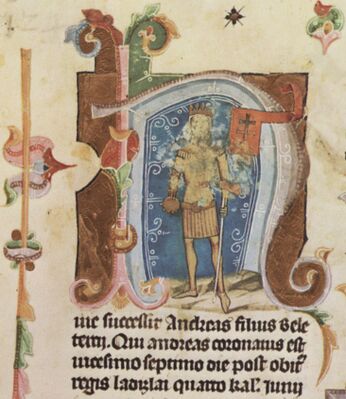 Huic successit Andreas filius Bele
tercij. Qui andreas coronatus est
uicesimo septimo die post obitū
regis ladizlai quarto kal. Junij